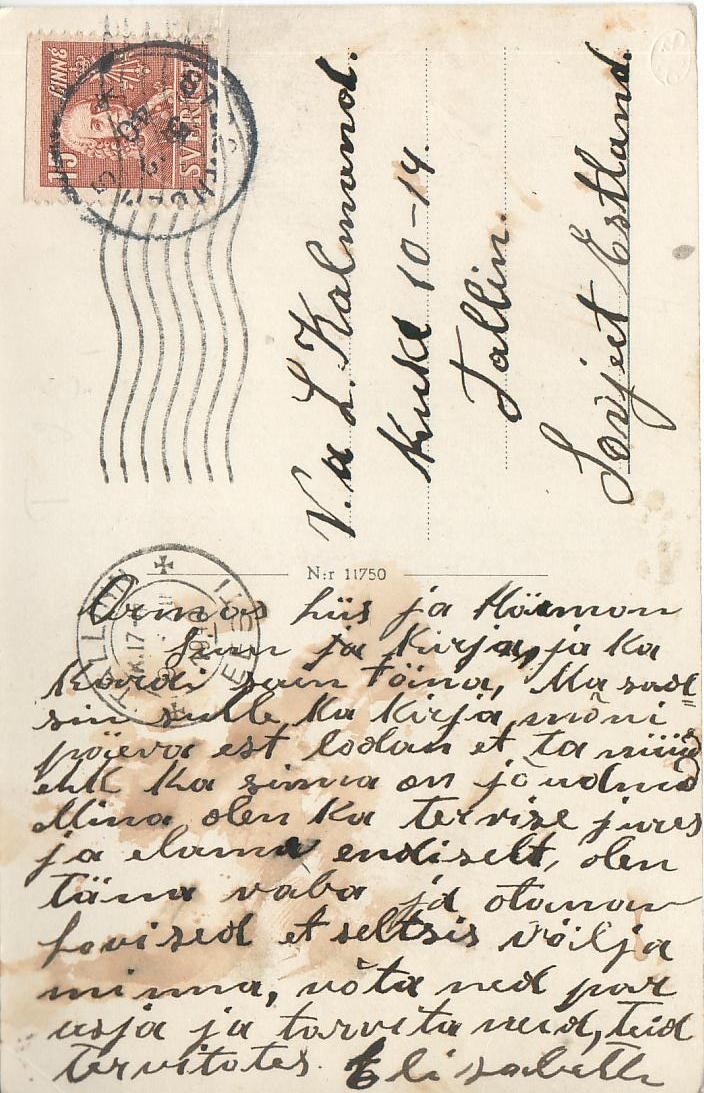 LINNÉ
15
SVERIGE
V. a L. Kalmond.
Kuke 10-14.
Tallin.
Sovjet Estland.
N:r 11750
TALLINN
EESTI
Armas hüs ja Härmon
Sinu ja kirja, ja ka
kaardi sain täna, Ma saat=
sin sulle ka kirja mõni
päeva est lodan et ta nüüd
ehk ka sinna on jõudnud
Mina olen ka tervise jures
ja elama endiselt, olen
täna vaba ja otanan
hovised et seltsis välja
minna, võta ned par
asja ja tarvita neid, teid
tervitates. Elisabeth